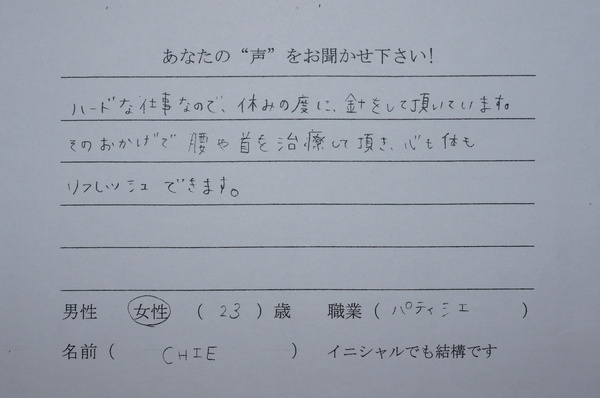 あなたの“声”をお聞かせ下さい！
ハードな仕事なので、休みの度に、針をして頂いています。
そのおかげで腰や首を治療して頂き、心も体も
リフレッシュできます。
男性 女性 （ 23 ）歳 職業（ パティシエ ）
名前（ CHIE ） イニシャルでも結構です